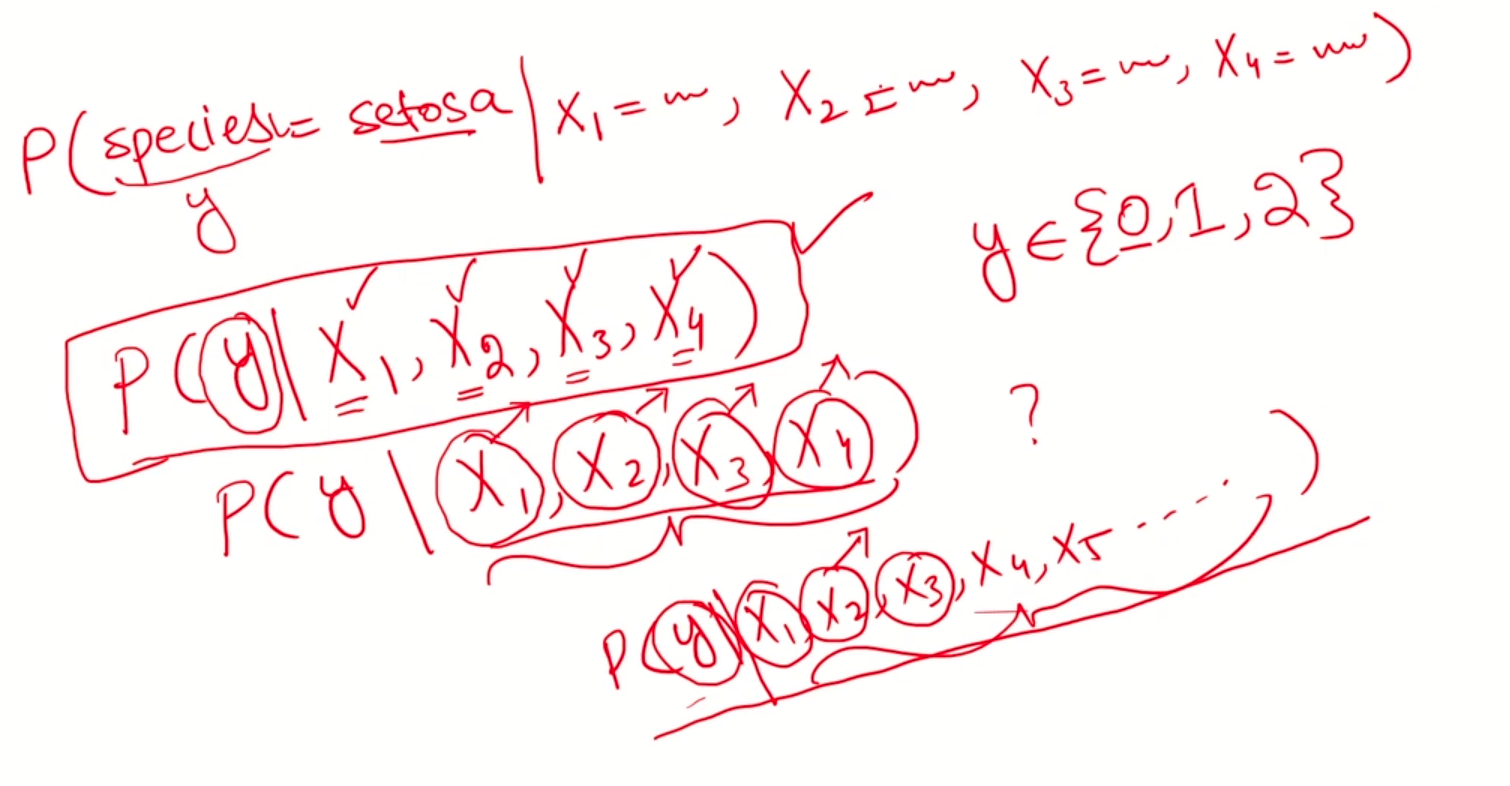 P(species = setosa | X₁ = ~, X₂ = ~, X₃ = ~, X₄ = ~)
y
y ∈ {0, 1, 2}
P(y | X₁, X₂, X₃, X₄)
P(y | X₁, X₂, X₃, X₄) ?
P(y | X₁, X₂, X₃, X₄, X₅ ....)